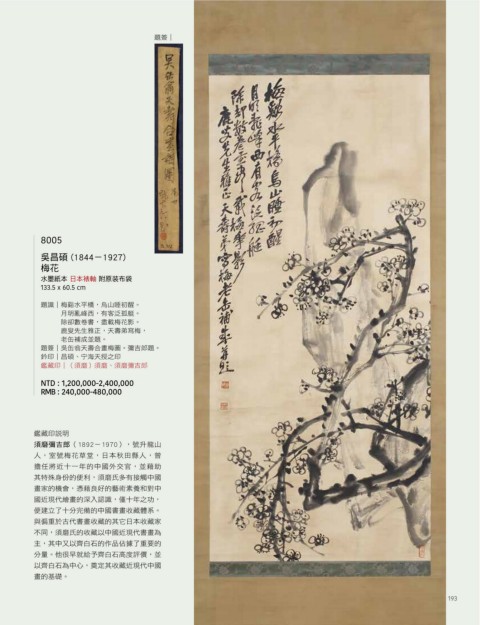 題簽｜
8005
吳昌碩（1844－1927）
梅花
水墨紙本 日本裱軸 附原裝布袋
133.5 x 60.5 cm
題識｜梅谿水平橋，烏山睡初醒。
月明亂峰西，有客泛孤艇。
除卻數卷書，盡載梅花影。
鹿叟先生雅正，天壽弟寫梅，
老缶補成並題。
題簽｜吳缶翁天壽合畫梅圖。彌吉郎題。
鈐印｜昌碩、宁海天授之印
鑑藏印｜（須磨）須磨、須磨彌吉郎
NTD : 1,200,000-2,400,000
RMB : 240,000-480,000
鑑藏印說明
須磨彌吉郎（1892－1970），號升龍山
人，室號梅花草堂，日本秋田縣人，曾
擔任將近十一年的中國外交官，並藉助
其特殊身份的便利，須磨氏多有接觸中國
畫家的機會，憑藉良好的藝術素養和對中
國近現代繪畫的深入認識，僅十年之功，
便建立了十分完備的中國書畫收藏體系。
與偏重於古代書畫收藏的其它日本收藏家
不同，須磨氏的收藏以中國近現代書畫為
主，其中又以齊白石的作品佔據了重要的
分量。他很早就給予齊白石高度評價，並
以齊白石為中心，奠定其收藏近現代中國
畫的基礎。
梅谿水平橋烏山睡初醒
月明亂峰西有客泛孤艇
除卻數卷書盡載梅花影
鹿叟先生雅正天壽弟寫梅老缶補成并題
193